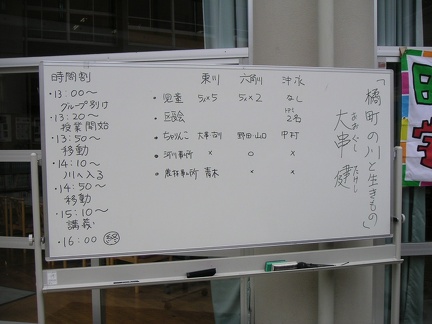 時間割
・13:00〜
グループ別け
・13:20〜
授業開始
・13:50〜
移動
・14:10〜
川へ入る
・14:50〜
移動
・15:10〜
講義
・16:00
東川 六角川 沖永
・児童 5×5 5×2 なし
・区会 2名
・ちゃりんこ 大串・古川 野田・山口 中村
・河川事務所 × ○ ×
・農林事務所 青木 × ×
「橘町の川と生きもの」
大串 健
おおぐし たけし